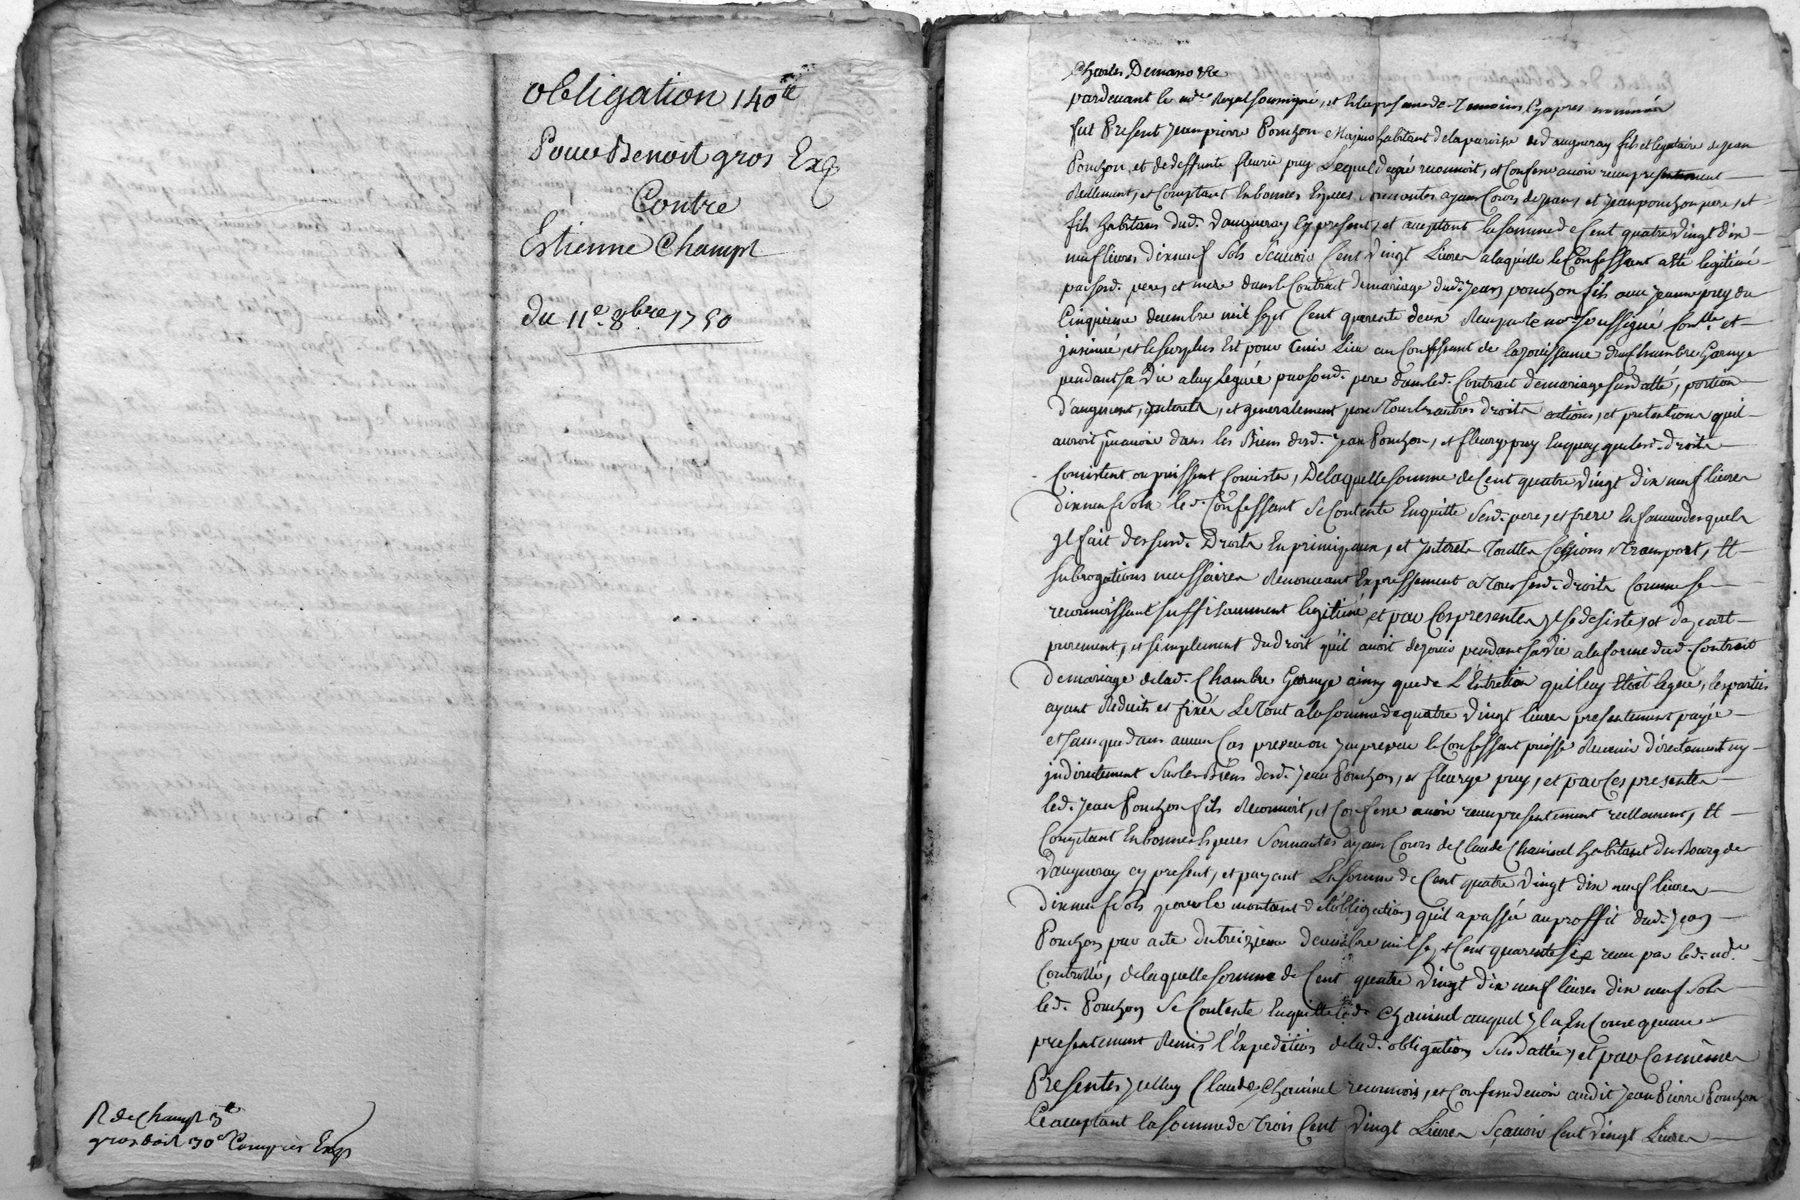 obligation 140ᵗᵗ
Pour Benoit gros Exp
Contre
Estienne Champt
du 11e. 8bre 1750
R de Champt 3ᵗᵗ
gros doit 30ˢ Compris Exp
Charles Demano
pardevant le noʳᵉ Royal soussigné, et en la presence de Temoins cy apres nommés
fut Present jean pierre Ponchon Majeur habitant de la paroisse de daugneray fils et legataire de jean
Ponchon, et de deffunte fleurie puy Lequel de gré reconnoit, et Confesse avoir receu presentement
Reellement, et Comptant En bonnes Especes sonnantes ayans Cours de jean, et jean ponchon pere, et
fils habitans dud. Daugneray cy present, et acceptant la somme de Cent quatre vingt dix
neuf livres dix neuf sols Sçavoir Cent vingt Livres a laquelle le Confessant a été legitimé
par sesd. peres et mere dans le Contrat de mariage dud. jean ponchon fils avec jeanne puy du
Cinquieme decembre mil sept Cent quarente deux Receu par le noʳᵉ soussigné Conllé et
insinué, et le surplus Est pour Tenir Lieu au Confessant de la jouissance d'une Chambre Garnye
pendant sa vie a luy Leguée par sond. pere dans led. Contrat de mariage susdatté, portion
d'augment, interets, et generalement pour Tous autres droits actions, et pretentions qu'il
auroit pu avoir dans les Biens desd. jean Ponchon, et fleurye puy En quoy que lesd. droits
Consistent ou puissent Consister, De laquelle somme de Cent quatre vingt dix neuf livres
dix neuf sols led. Confessant Se Contente En quitte sesd. pere, et frere En faveur desquels
yl fait desusd. Droits En principaux, et interets Touttes Cessions Transport, Et
subrogations necessaires Renonceant Expressement a Tous sesd. droits Comme se
reconnoissant suffisamment legitimé, et par Ces presentes yl se desiste, et depart
purement, et simplement du droit qu'il avoit de jouir pendant sa vie a la forme dud. Contrat
de mariage de lad. Chambre Garnye ainsy que de L'Entretien qu'il luy Etoit legué, les parties
ayant Reduits et fixés Le Tout a la somme de quatre vingt livres presentement payée
et sans que dans aucun Cas preveu ou impreveu le Confessant puisse Revenir directement ny
indirectement sur les Biens desd. jean Ponchon, et fleurye puy, et par Ces presentes
led. jean Ponchon fils Reconnoit, et Confesse avoir receu presentement reellement, Et
Comptant En bonnes Especes Sonnantes ayans Cours de Claude Chavinel habitant du Bourg de
Daugneray cy present, et payant La somme de Cent quatre vingt dix neuf livres
dix neuf sols pour le montant de l'obligation qu'il a passée au proffit dud. jean
Ponchon par acte du treizieme decembre mil sept Cent quarente six receu par led. noʳᵉ
Controllé, de laquelle somme de Cent quatre vingt dix neuf livres dix neuf sols
led. Ponchon se Contente En quitte led. Chavinel auquel yl a En Consequence
presentement Remis l'Expedition de lad. obligation susdattée, et par Ces mêmes
Presentes jcelluy Claude Chavinel reconnois, et Confesse devoir audit jean Pierre Ponchon
Ce acceptant la somme de Trois Cent vingt Livres Sçavoir Cent vingt Livres